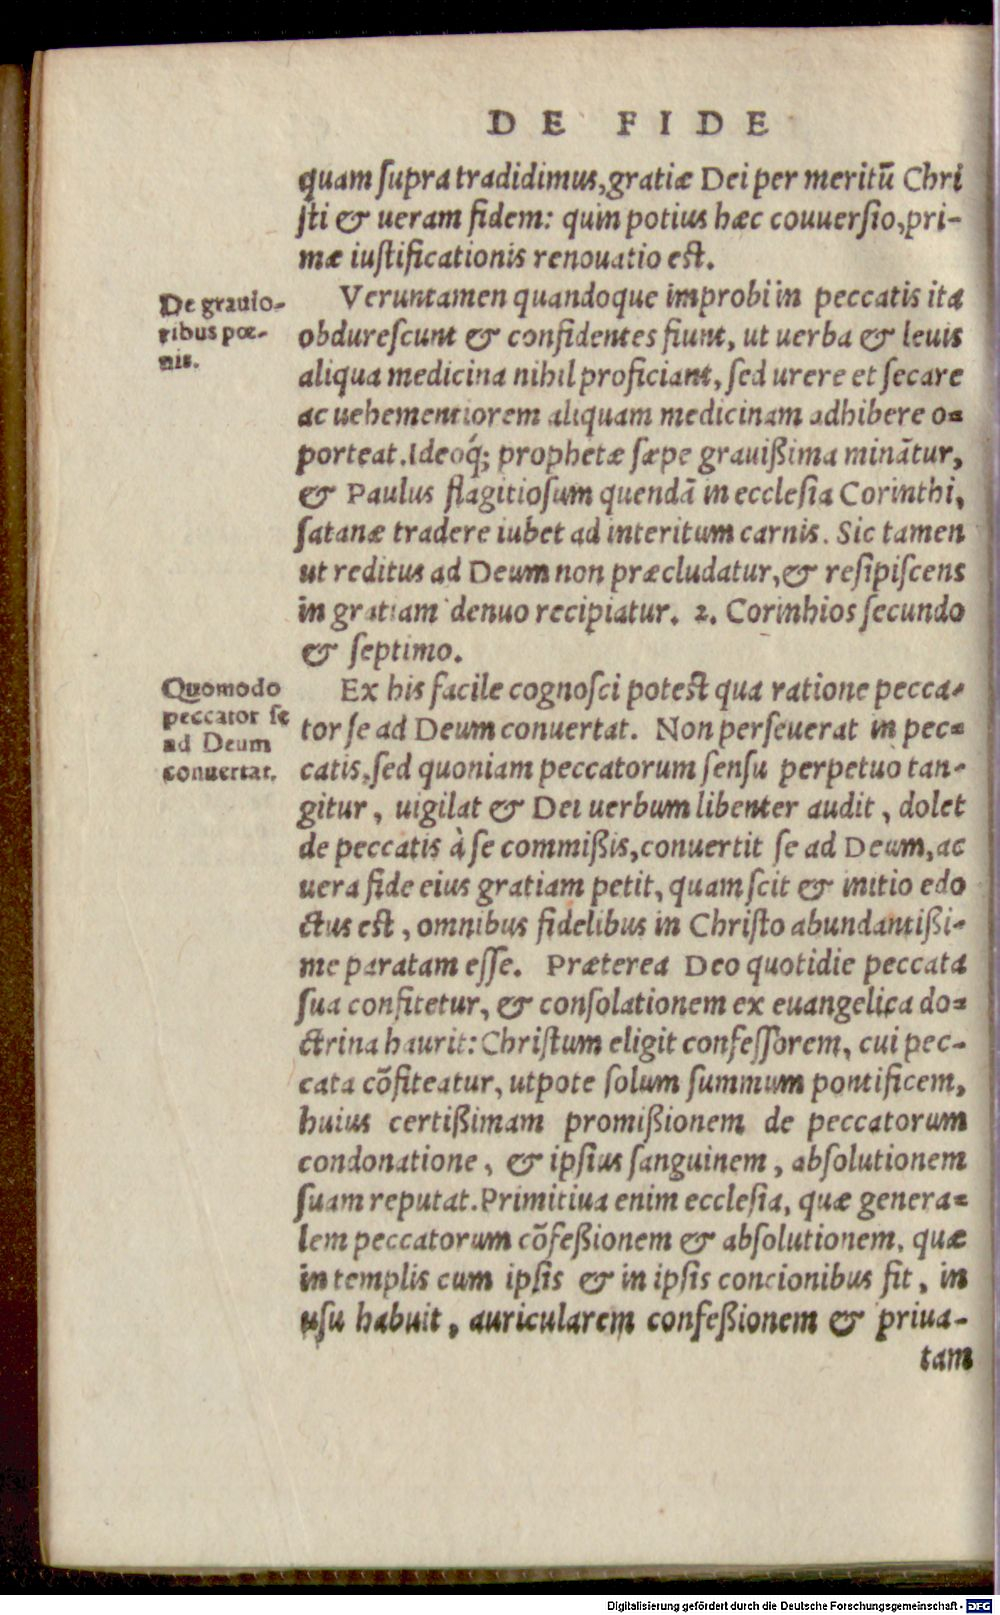 DE FIDE
quam supra tradidimus, gratiæ Dei per meritũ Chri
sti & ueram fidem: quin potius hæc couuersio, pri-
mæ iustificationis renouatio est.
De grauio-
ribus pœ-
nis.
Veruntamen quandoque improbi in peccatis ita
obdurescunt & confidentes fiunt, ut uerba & leuis
aliqua medicina nihil proficiant, sed urere et secare
ac uehementiorem aliquam medicinam adhibere o-
porteat. Ideoq́; prophetæ sæpe grauißima minãtur,
& Paulus flagitiosum quendã in ecclesia Corinthi,
satanæ tradere iubet ad interitum carnis. Sic tamen
ut reditus ad Deum non præcludatur, & resipiscens
in gratiam denuo recipiatur. 2. Corinhios secundo
& septimo.
Quomodo
peccator se
ad Deum
conuertat.
Ex his facile cognosci potest qua ratione pecca-
tor se ad Deum conuertat. Non perseuerat in pec-
catis, sed quoniam peccatorum sensu perpetuo tan-
gitur, uigilat & Dei uerbum libenter audit, dolet
de peccatis à se commißis, conuertit se ad Deum, ac
uera fide eius gratiam petit, quam scit & initio edo
ctus est, omnibus fidelibus in Christo abundantißi-
me paratam esse. Præterea Deo quotidie peccata
sua confitetur, & consolationem ex euangelica do-
ctrina haurit: Christum eligit confessorem, cui pec-
cata cõfiteatur, utpote solum summum pontificem,
huius certißimam promißionem de peccatorum
condonatione, & ipsius sanguinem, absolutionem
suam reputat. Primitiua enim ecclesia, quæ genera-
lem peccatorum cõfeßionem & absolutionem, quæ
in templis cum ipsis & in ipsis concionibus fit, in
usu habuit, auricularem confeßionem & priua-
tam
Digitalisierung gefördert durch die Deutsche Forschungsgemeinschaft - DFG